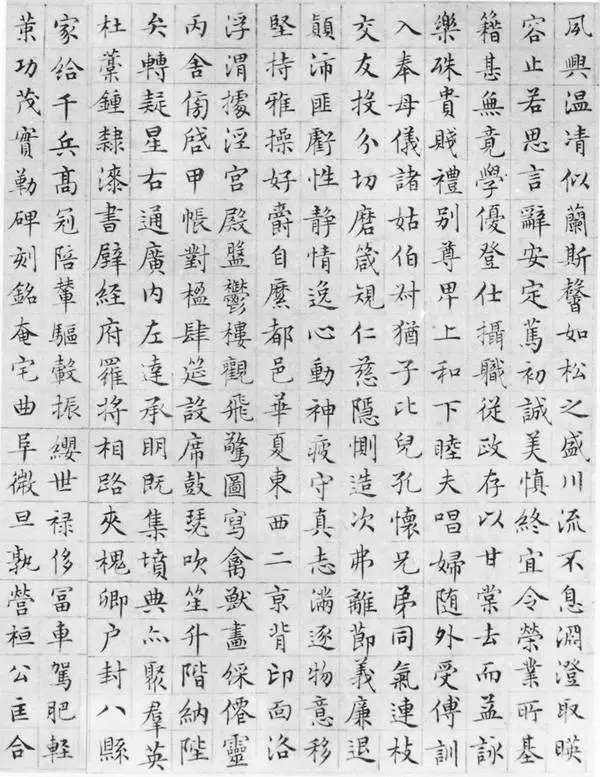 夙興温凊似蘭斯馨如松之盛川流不息淵澄取暎
容止若思言辭安定篤初誠美慎終宜令榮業所基
籍甚無竟學優登仕攝職從政存以甘棠去而益詠
樂殊貴賤禮别尊卑上和下睦夫唱婦随外受傅訓
入奉母儀諸姑伯叔猶子比兒孔懷兄弟同氣連枝
交友投分切磨箴規仁慈隱惻造次弗離節義廉退
顛沛匪虧性静情逸心動神疲守真志滿逐物意移
堅持雅操好爵自縻都邑華夏東西二京背邙面洛
浮渭據涇宮殿盤鬱樓觀飛驚圖寫禽獸畫綵僊靈
丙舍傍啓甲帳對楹肆筵設席鼓瑟吹笙升階納陛
弁轉疑星右通廣内左達承明既集墳典亦聚羣英
杜稾鍾隸漆書壁經府羅將相路夾槐卿户封八縣
家給千兵高冠陪輦驅轂振纓世禄侈富車駕肥軽
策功茂實勒碑刻銘奄宅曲阜微旦孰營桓公匡合